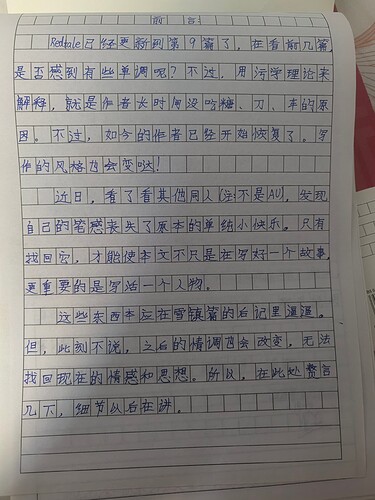 前言:
Redtale已经更新到第9篇了，在看前几篇，
是否感到有些单调呢？不过，用污学理论来
解释，就是作者长时间没吃糖、刀、车的原
因。不过，如今的作者已经开始恢复了。写
作的风格也会变哒！
近日，看了看其他同人(注:不是AU)，发现
自己的笔感丧失了原本的单纯小快乐。只有
找回它，才能使本文不只是在写好一个故事，
更重要的是写活一个人物。
这些东西本应在雪镇篇的后记里逼逼。
但，此刻不说，之后的情调也会改变，无法
找回现在的情感和思想。所以，在此处赘言
几下，细节以后在讲。